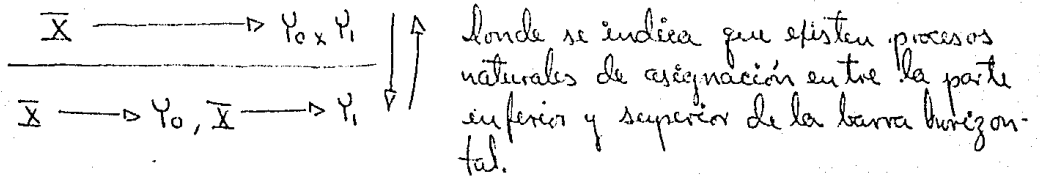 X ⟶ Y₀ × Y₁
X ⟶ Y₀, X ⟶ Y₁
donde se indica que existen procesos
naturales de asignación entre la parte
inferior y superior de la barra horizon-
tal.